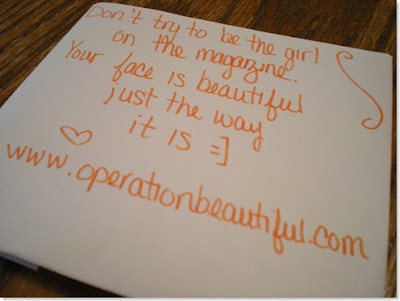 Don't try to be the girl
on the magazine.
Your face is beautiful
just the way
it is =]
www.operationbeautiful.com